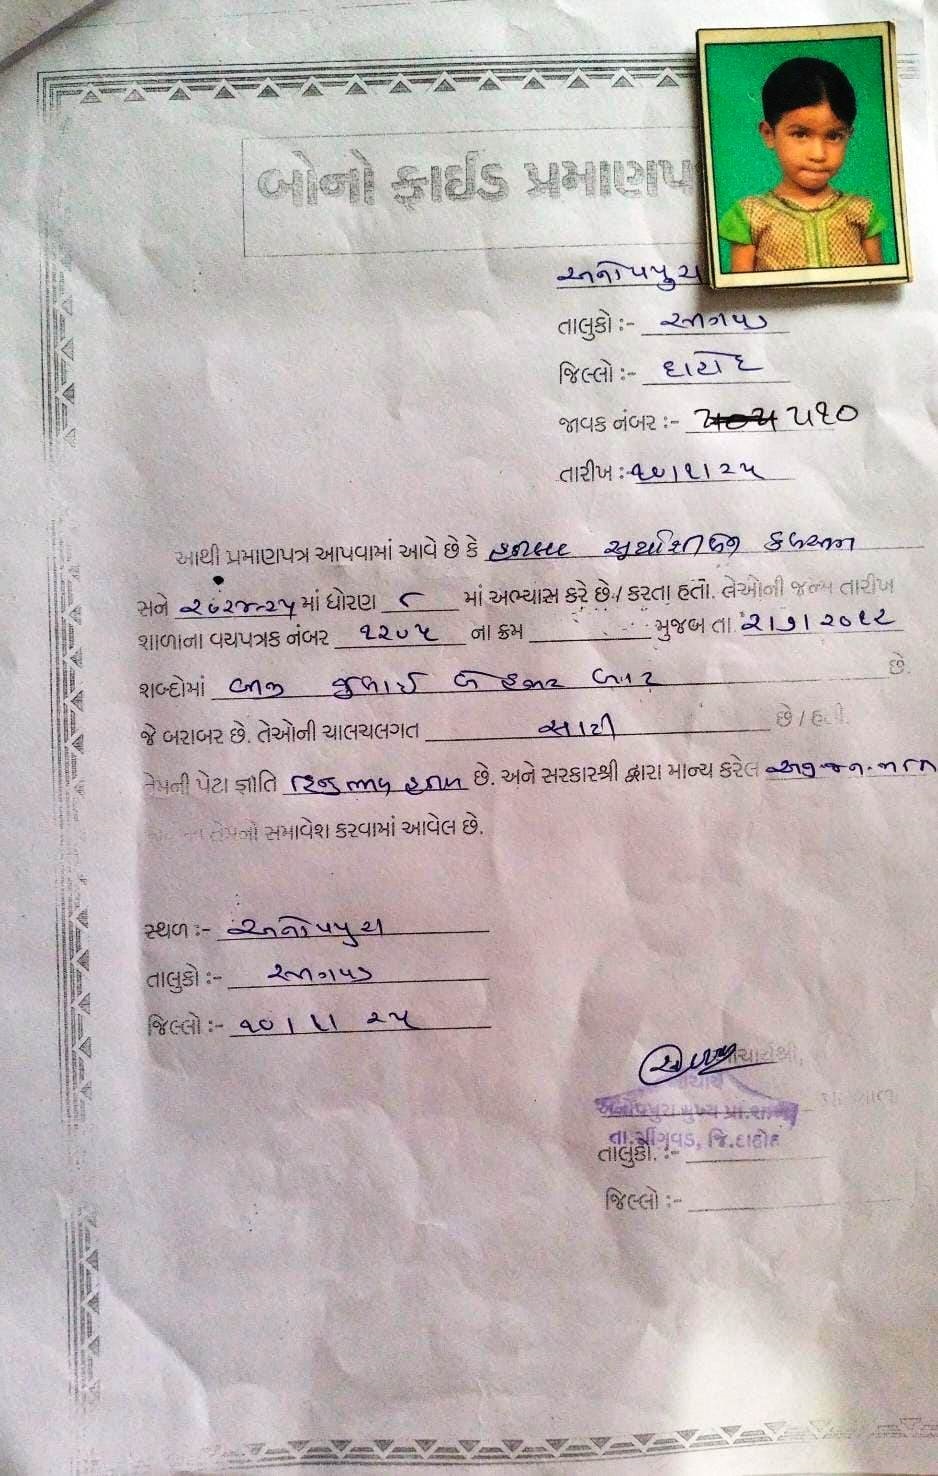 બોનો ફાઈડ પ્રમાણપ
અનોપપુરા
તાલુકો :-
જિલ્લો :- દાહોદ
જાવક નંબર :- ૫૧૦
તારીખ :- ૧૦/૧/૨૫
આથી પ્રમાણપત્ર આપવામાં આવે છે કે
સને ૨૦૨૪-૨૫ માં ધોરણ ૮ માં અભ્યાસ કરે છે / કરતા હતો. તેઓની જન્મ તારીખ
શાળાના વયપત્રક નંબર ૧૨૦૫ ના ક્રમ મુજબ તા. ૨/૭/૨૦૧૨
શબ્દોમાં બીજી જુલાઈ બે હજાર બાર છે.
જે બરાબર છે. તેઓની ચાલચલગત સારી છે / હતી.
તેમની પેટા જ્ઞાતિ છે. અને સરકારશ્રી દ્વારા માન્ય કરેલ
તેમનો સમાવેશ કરવામાં આવેલ છે.
સ્થળ :- અનોપપુરા
તાલુકો :-
જિલ્લો :- ૧૦/૧/૨૫
આચાર્યશ્રી,
આચાર્ય
અનોપપુરા મુખ્ય પ્રા.શાળા
તા.સીંગવડ, જિ.દાહોદ
તાલુકો. :-
જિલ્લો :-